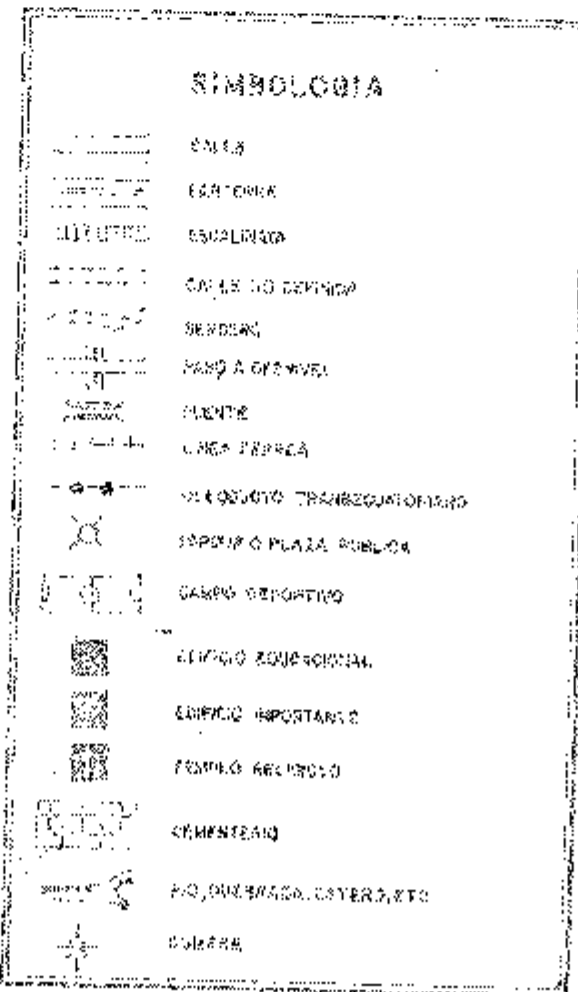 SIMBOLOGIA
CALLE
ESCALINATA
CALLE NO DEFINIDA
SENDERO
PASO A DESNIVEL
PUENTE
LINEA FERREA
OLEODUCTO TRANSECUATORIANO
PARQUE O PLAZA PUBLICA
CAMPO DEPORTIVO
EDIFICIO EDUCACIONAL
EDIFICIO IMPORTANTE
TEMPLO RELIGIOSO
CEMENTERIO
RIO, QUEBRADA, ESTERO, ETC